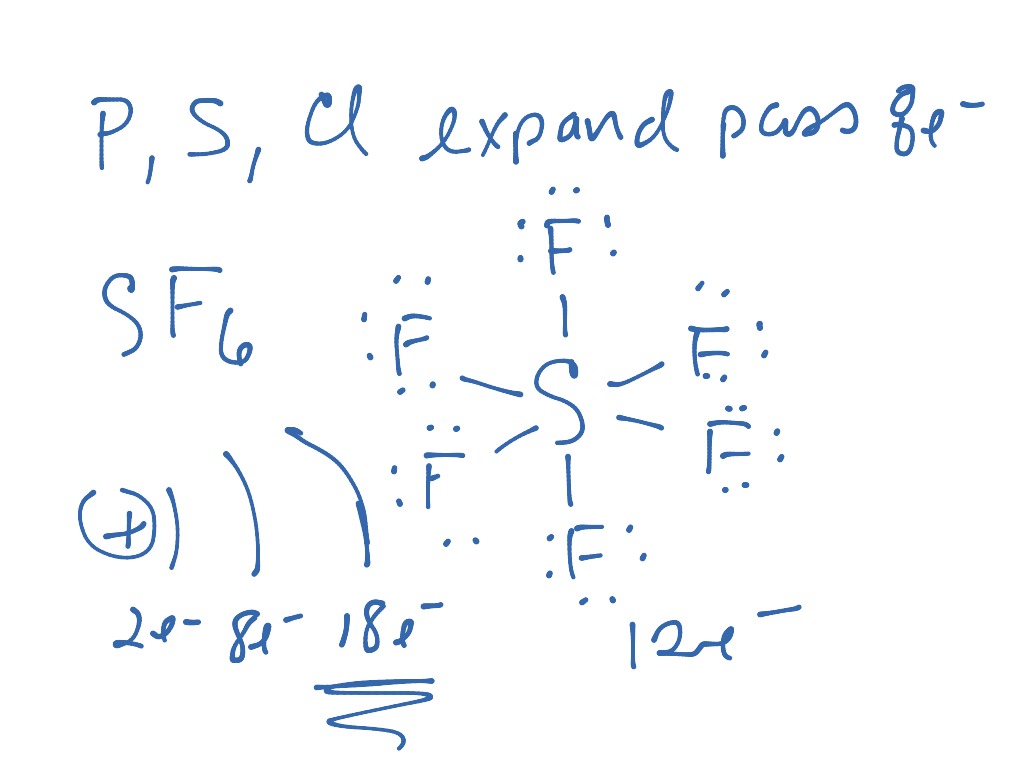 P, S, Cl expand pass 8e⁻
F
SF₆
F
F
S
F
F
F
(+)
2e⁻ 8e⁻ 18e⁻
12e⁻